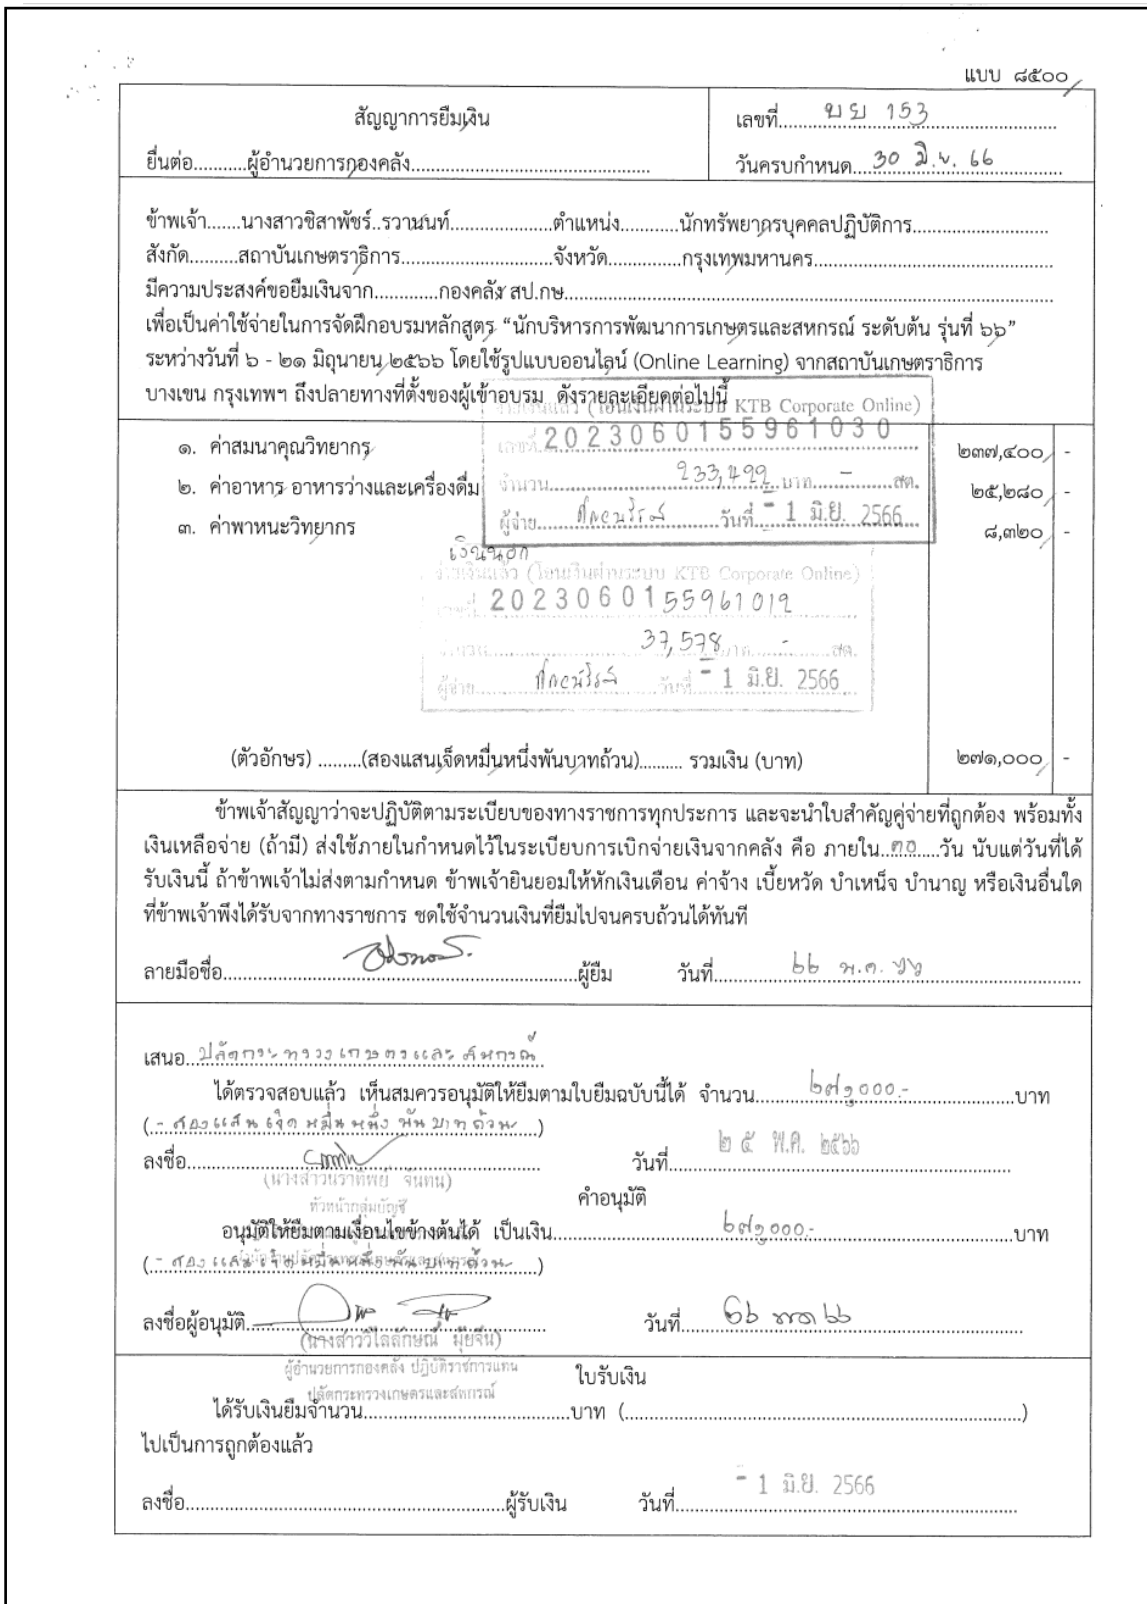 แบบ ๘๕๐๐
สัญญาการยืมเงิน
เลขที่.......... บย 153
ยื่นต่อ...........ผู้อำนวยการกองคลัง..........
วันครบกำหนด... 30 มิ.ย. 66
ข้าพเจ้า.......นางสาวชิสาพัชร์..รวานนท์....................ตำแหน่ง............นักทรัพยากรบุคคลปฏิบัติการ..........
สังกัด..........สถาบันเกษตราธิการ..............................จังหวัด...............กรุงเทพมหานคร..........
มีความประสงค์ขอยืมเงินจาก.............กองคลัง สป.กษ..........
เพื่อเป็นค่าใช้จ่ายในการจัดฝึกอบรมหลักสูตร “นักบริหารการพัฒนาการเกษตรและสหกรณ์ ระดับต้น รุ่นที่ ๖๖”
ระหว่างวันที่ ๖ - ๒๑ มิถุนายน ๒๕๖๖ โดยใช้รูปแบบออนไลน์ (Online Learning) จากสถาบันเกษตราธิการ
บางเขน กรุงเทพฯ ถึงปลายทางที่ตั้งของผู้เข้าอบรม ดังรายละเอียดต่อไปนี้
จ่ายเงินแล้ว (โอนเงินผ่านระบบ KTB Corporate Online)
๑. ค่าสมนาคุณวิทยากร ๒๓๗,๔๐๐ -
เลขที่ 2023060155961030
๒. ค่าอาหาร อาหารว่างและเครื่องดื่ม ๒๕,๒๘๐ -
จำนวน.......... 233,422 บาท - สต.
๓. ค่าพาหนะวิทยากร ๘,๓๒๐ -
ผู้จ่าย.......... วันที่ - 1 มิ.ย. 2566
เงินนอก
จ่ายเงินแล้ว (โอนเงินผ่านระบบ KTB Corporate Online)
เลขที่ 2023060155961012
จำนวน.......... 37,578 บาท - สต.
ผู้จ่าย.......... วันที่ - 1 มิ.ย. 2566
(ตัวอักษร) .........(สองแสนเจ็ดหมื่นหนึ่งพันบาทถ้วน).......... รวมเงิน (บาท) ๒๗๑,๐๐๐ -
ข้าพเจ้าสัญญาว่าจะปฏิบัติตามระเบียบของทางราชการทุกประการ และจะนำใบสำคัญคู่จ่ายที่ถูกต้อง พร้อมทั้ง
เงินเหลือจ่าย (ถ้ามี) ส่งใช้ภายในกำหนดไว้ในระเบียบการเบิกจ่ายเงินจากคลัง คือ ภายใน..๓๐....วัน นับแต่วันที่ได้
รับเงินนี้ ถ้าข้าพเจ้าไม่ส่งตามกำหนด ข้าพเจ้ายินยอมให้หักเงินเดือน ค่าจ้าง เบี้ยหวัด บำเหน็จ บำนาญ หรือเงินอื่นใด
ที่ข้าพเจ้าพึงได้รับจากทางราชการ ชดใช้จำนวนเงินที่ยืมไปจนครบถ้วนได้ทันที
ลายมือชื่อ..........ผู้ยืม วันที่.......... ๒๖ พ.ค. ๖๖
เสนอ.. ปลัดกระทรวงเกษตรและสหกรณ์
ได้ตรวจสอบแล้ว เห็นสมควรอนุมัติให้ยืมตามใบยืมฉบับนี้ได้ จำนวน.......... ๒๗๑,๐๐๐.- ..........บาท
(.. - สองแสนเจ็ดหมื่นหนึ่งพันบาทถ้วน- ..)
ลงชื่อ.......... วันที่.......... ๒๕ พ.ค. ๒๕๖๖
(นางสาวนราทิพย์ จันทน)
หัวหน้ากลุ่มบัญชี
คำอนุมัติ
อนุมัติให้ยืมตามเงื่อนไขข้างต้นได้ เป็นเงิน.......... ๒๗๑,๐๐๐.- ..........บาท
(.. - สองแสนเจ็ดหมื่นหนึ่งพันบาทถ้วน- ..)
ลงชื่อผู้อนุมัติ.......... วันที่.......... ๒๖ พค ๖๖
(นางสาววิไลลักษณ์ มุ้ยจีน)
ผู้อำนวยการกองคลัง ปฏิบัติราชการแทน
ปลัดกระทรวงเกษตรและสหกรณ์
ใบรับเงิน
ได้รับเงินยืมจำนวน..........บาท (..........)
ไปเป็นการถูกต้องแล้ว
ลงชื่อ..........ผู้รับเงิน วันที่.......... - 1 มิ.ย. 2566